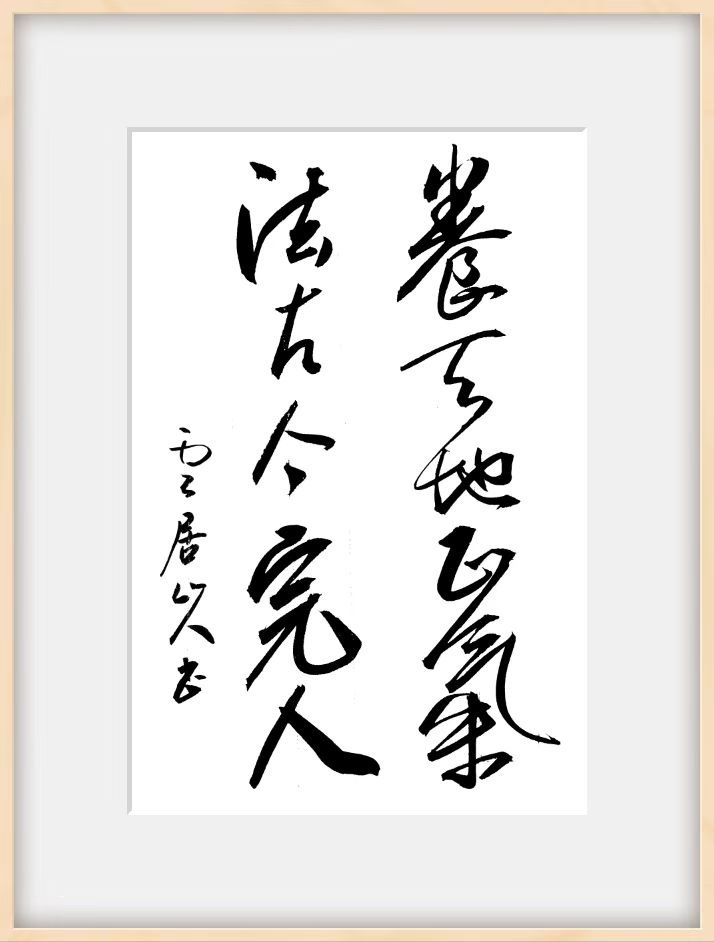 養天地正氣
法古今完人
雲居山人书